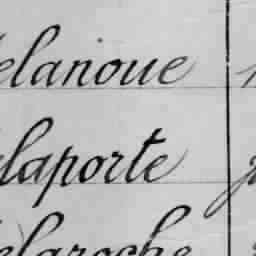 elanoue
elaporte
elaroche